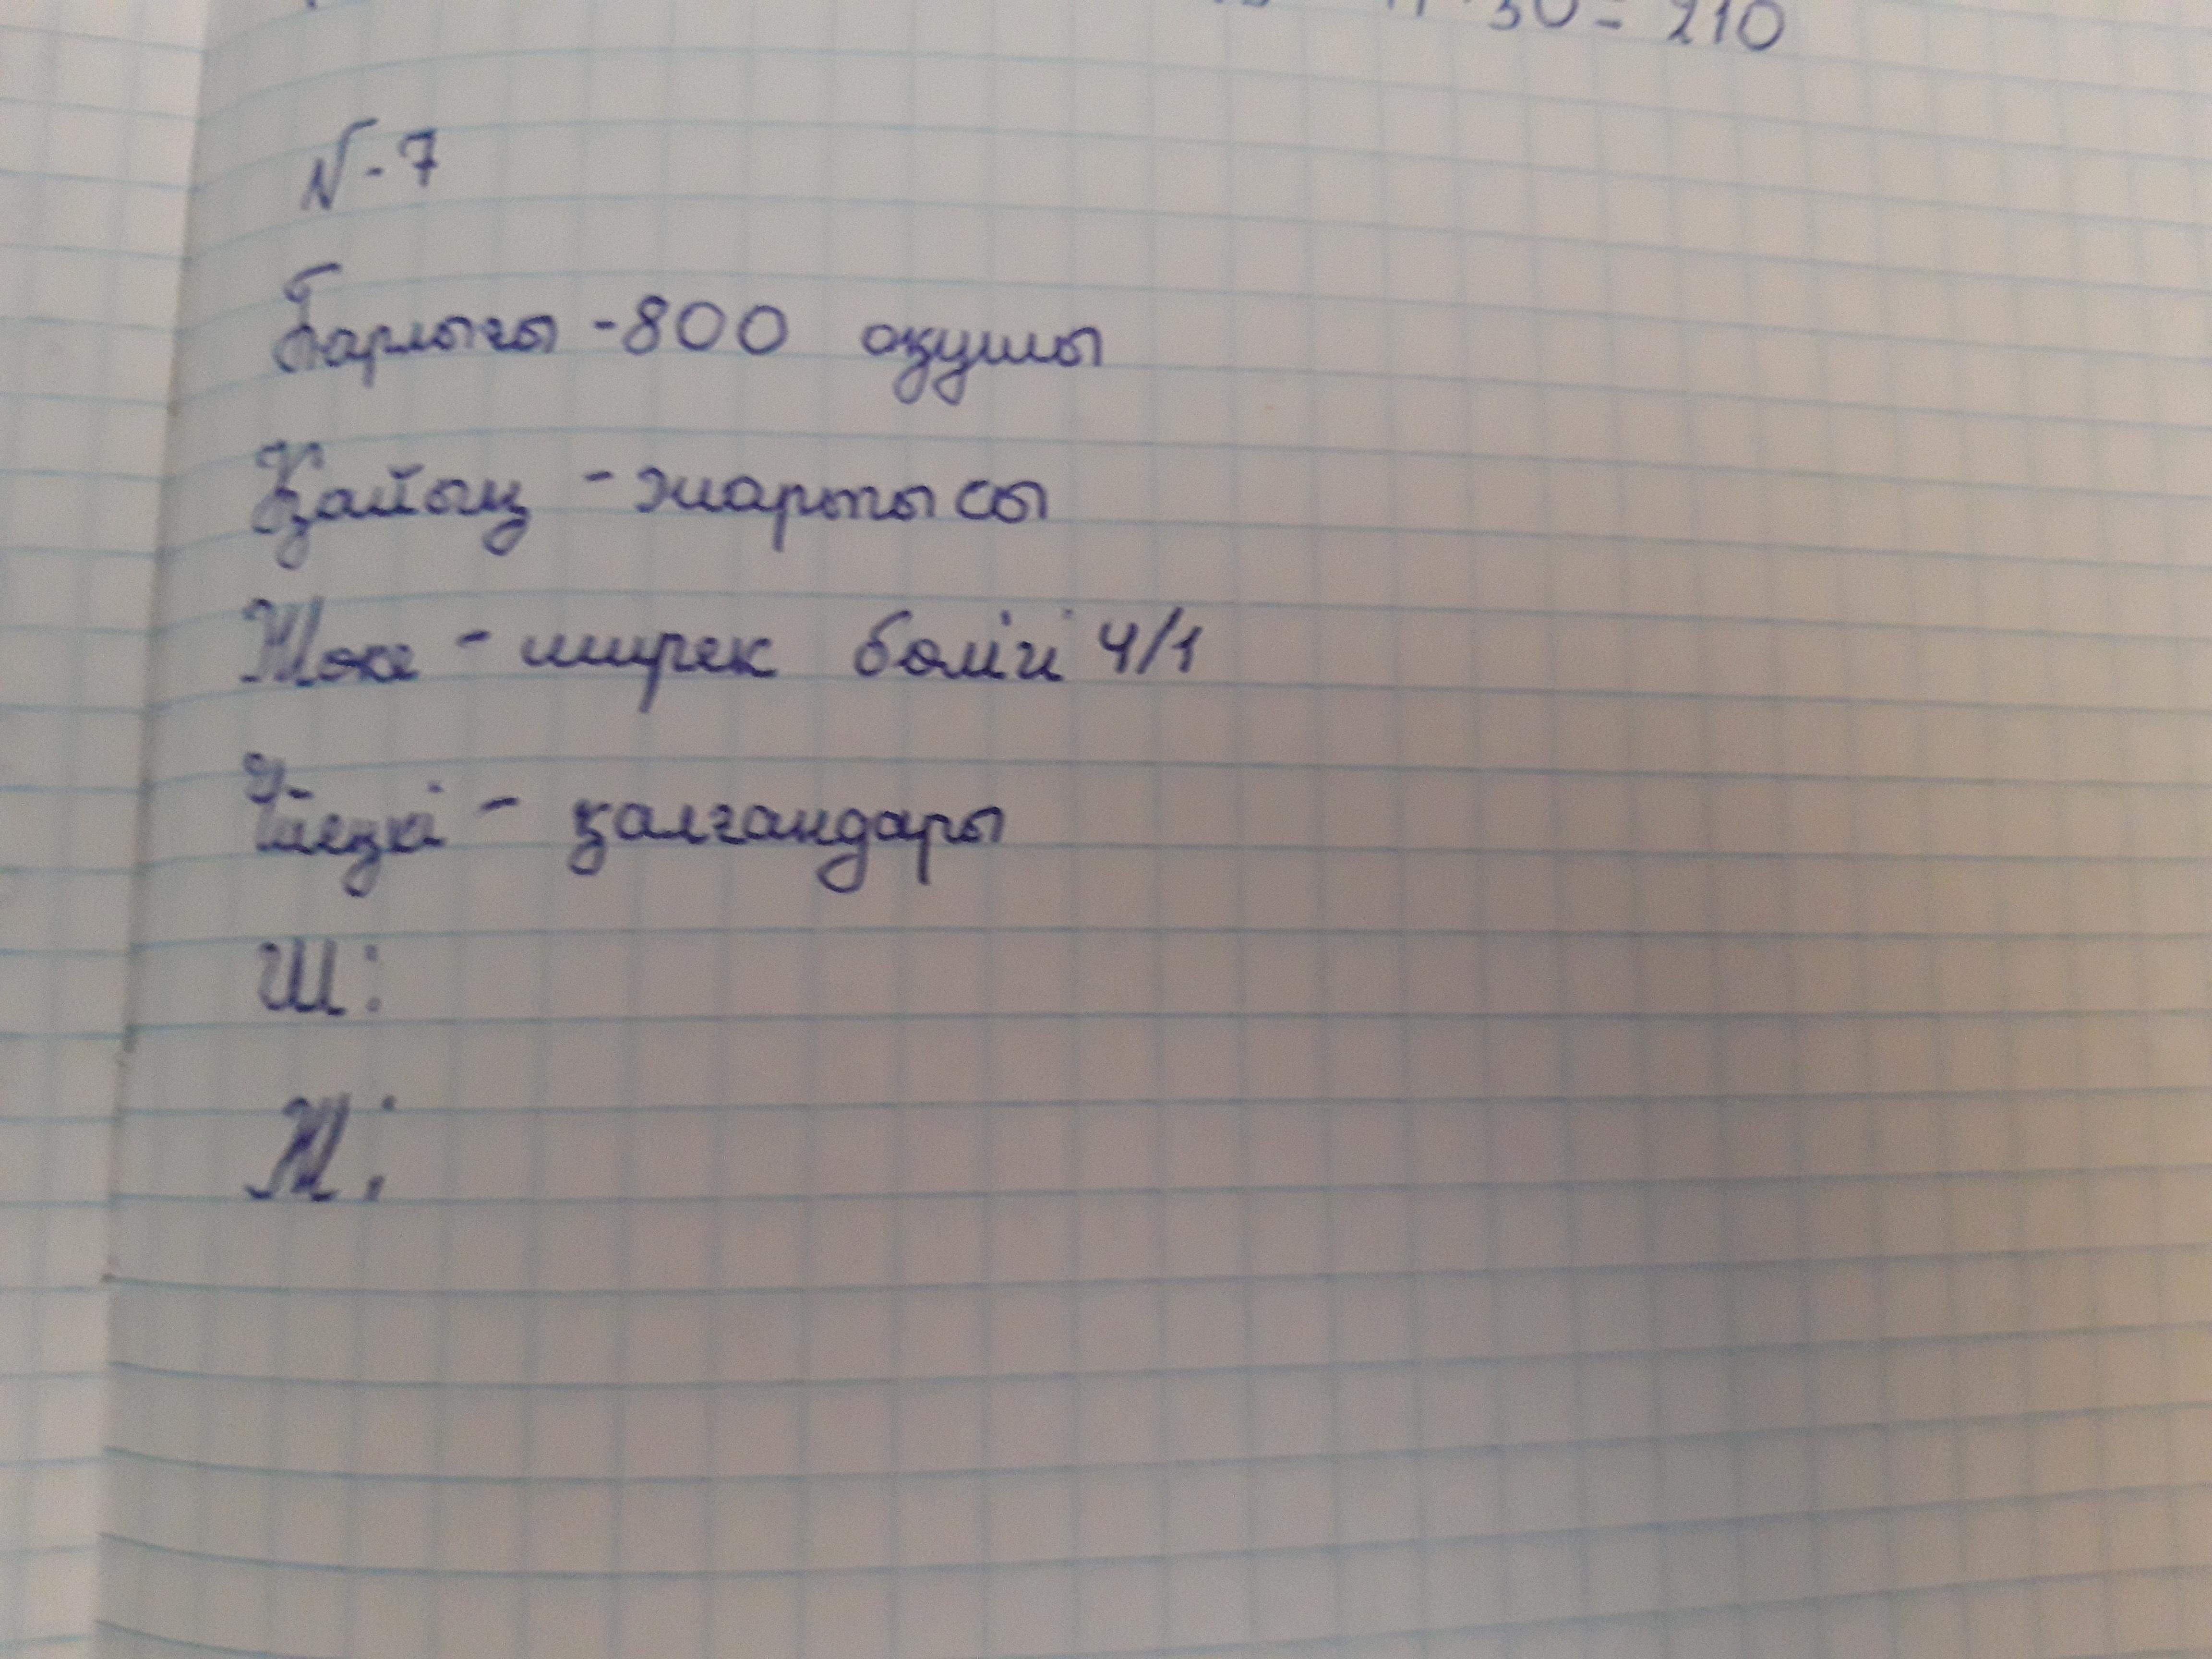 30 = 210
N-7
Барлығы - 800 оқушы
Қайың - жартысы
Жөке - ширек бөлігі 4/1
Үйеңкі - қалғандары
Ш:
Ж: